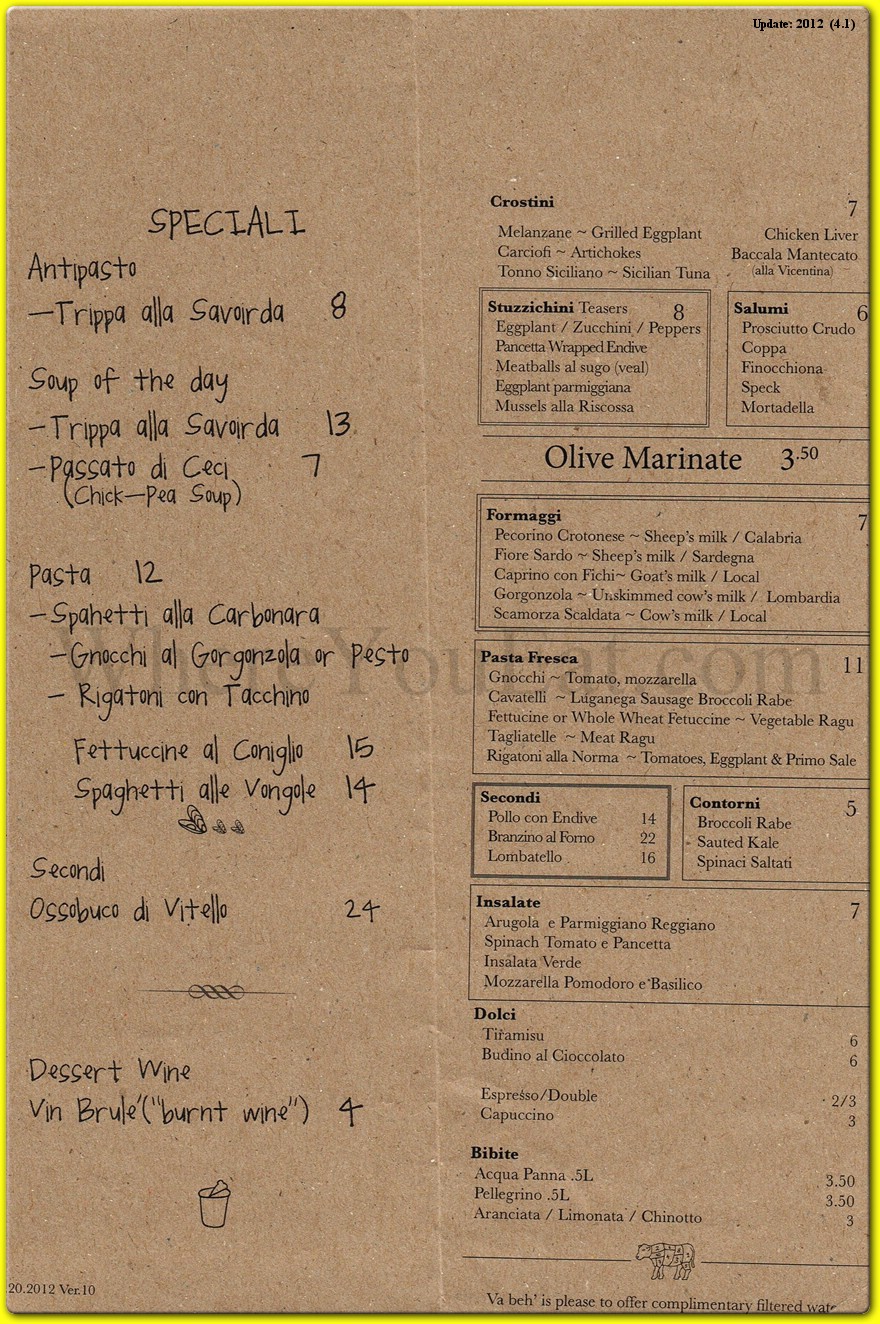 Update: 2012 (4.1)
SPECIALI
Antipasto
—Trippa alla Savoirda 8
Soup of the day
—Trippa alla Savoirda 13
—Passato di Ceci 7
(Chick—Pea Soup)
Pasta 12
—Spahetti alla Carbonara
—Gnocchi al Gorgonzola or Pesto
— Rigatoni con Tacchino
Fettuccine al Coniglio 15
Spaghetti alle Vongole 14
Secondi
Ossobuco di Vitello 24
Dessert Wine
Vin Brule'("burnt wine") 4
20.2012 Ver.10
Crostini 7
Melanzane ~ Grilled Eggplant Chicken Liver
Carciofi ~ Artichokes Baccala Mantecato
Tonno Siciliano ~ Sicilian Tuna (alla Vicentina)
Stuzzichini Teasers 8
Eggplant / Zucchini / Peppers
Pancetta Wrapped Endive
Meatballs al sugo (veal)
Eggplant parmiggiana
Mussels alla Riscossa
Salumi 6
Prosciutto Crudo
Coppa
Finocchiona
Speck
Mortadella
Olive Marinate 3.50
Formaggi 7
Pecorino Crotonese ~ Sheep's milk / Calabria
Fiore Sardo ~ Sheep's milk / Sardegna
Caprino con Fichi~ Goat's milk / Local
Gorgonzola ~ Unskimmed cow's milk / Lombardia
Scamorza Scaldata ~ Cow's milk / Local
Pasta Fresca 11
Gnocchi ~ Tomato, mozzarella
Cavatelli ~ Luganega Sausage Broccoli Rabe
Fettucine or Whole Wheat Fetuccine ~ Vegetable Ragu
Tagliatelle ~ Meat Ragu
Rigatoni alla Norma ~ Tomatoes, Eggplant & Primo Sale
Secondi
Pollo con Endive 14
Branzino al Forno 22
Lombatello 16
Contorni 5
Broccoli Rabe
Sauted Kale
Spinaci Saltati
Insalate 7
Arugola e Parmiggiano Reggiano
Spinach Tomato e Pancetta
Insalata Verde
Mozzarella Pomodoro e Basilico
Dolci
Tiramisu 6
Budino al Cioccolato 6
Espresso/Double 2/3
Capuccino 3
Bibite
Acqua Panna .5L 3.50
Pellegrino .5L 3.50
Aranciata / Limonata / Chinotto 3
Va beh' is please to offer complimentary filtered